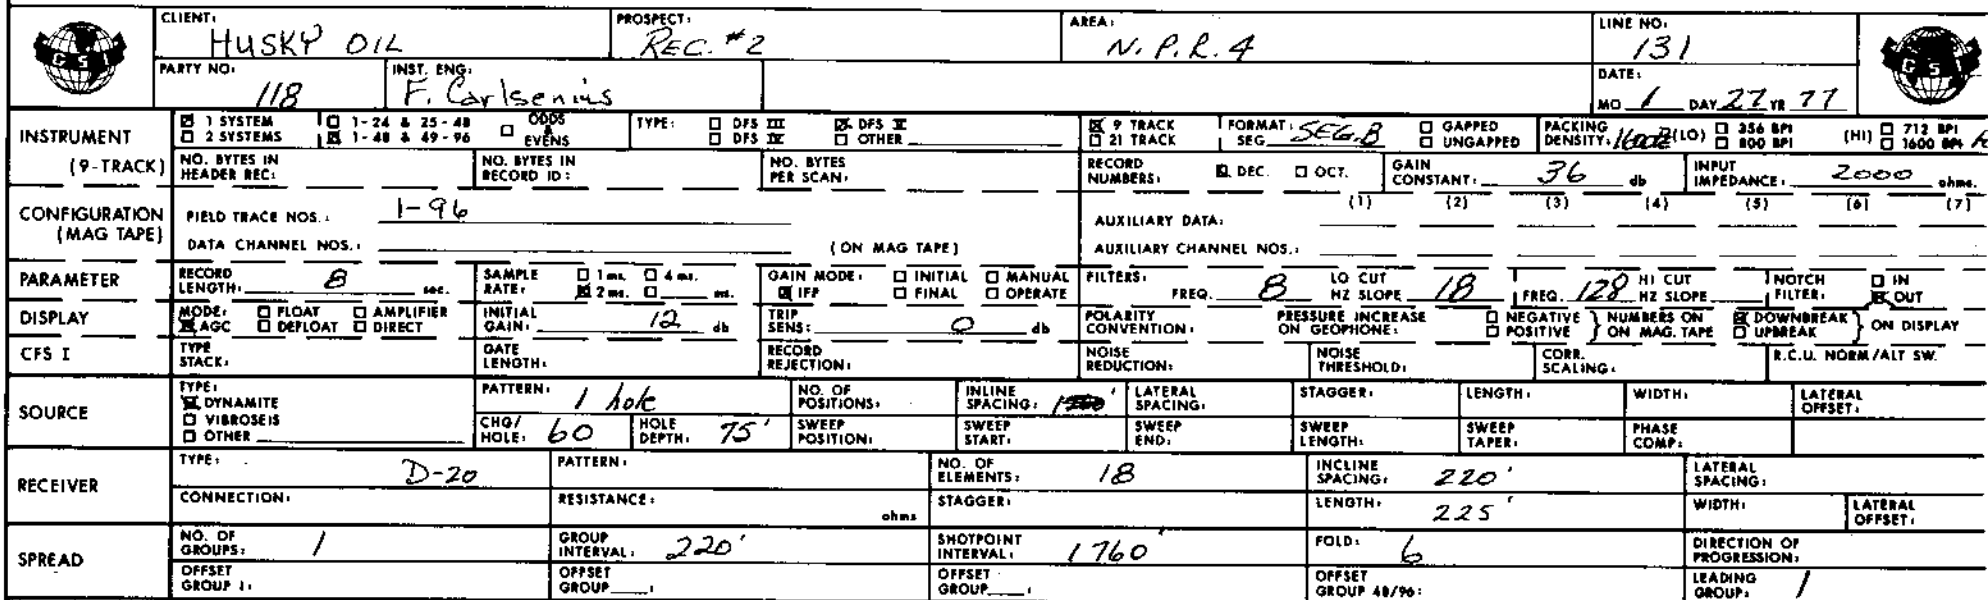 CLIENT: HUSKY OIL PROSPECT: REC. #2 AREA: N.P.R. 4 LINE NO: 131
GSI GSI
PARTY NO: 118 INST. ENG: F. Carlsenius DATE: MO 1 DAY 27 YR 77
INSTRUMENT (9-TRACK)
☒ 1 SYSTEM ☐ 1-24 & 25-48 ☐ ODDS & EVENS TYPE: ☐ DFS III ☒ DFS V ☒ 9 TRACK FORMAT: SEG SEG.B ☐ GAPPED PACKING DENSITY: (LO) ☐ 356 BPI (HI) ☐ 712 BPI
☐ 2 SYSTEMS ☒ 1-48 & 49-96 ☐ DFS IV ☐ OTHER ☐ 21 TRACK ☐ UNGAPPED ☐ 800 BPI ☐ 1600 BPI
NO. BYTES IN HEADER REC: NO. BYTES IN RECORD ID: NO. BYTES PER SCAN: RECORD NUMBERS: ☒ DEC. ☐ OCT. GAIN CONSTANT: 36 db INPUT IMPEDANCE: 2000 ohms.
CONFIGURATION (MAG TAPE)
FIELD TRACE NOS.: 1-96 AUXILIARY DATA: (1) (2) (3) (4) (5) (6) (7)
DATA CHANNEL NOS.: (ON MAG TAPE) AUXILIARY CHANNEL NOS.:
PARAMETER RECORD LENGTH: 8 sec. SAMPLE RATE: ☐ 1 ms. ☐ 4 ms. ☒ 2 ms. ☐ ms. GAIN MODE: ☐ INITIAL ☐ MANUAL ☒ IFP ☐ FINAL ☐ OPERATE FILTERS: FREQ. 8 LO CUT HZ SLOPE 18 FREQ. 128 HI CUT HZ SLOPE NOTCH FILTER: ☐ IN ☒ OUT
DISPLAY MODE: ☐ FLOAT ☐ AMPLIFIER ☒ AGC ☐ DEFLOAT ☐ DIRECT INITIAL GAIN: 12 db TRIP SENS: 0 db POLARITY CONVENTION: PRESSURE INCREASE ON GEOPHONE: ☐ NEGATIVE ☐ POSITIVE } NUMBERS ON ON MAG. TAPE ☒ DOWNBREAK ☐ UPBREAK } ON DISPLAY
CFS I TYPE STACK: GATE LENGTH: RECORD REJECTION: NOISE REDUCTION: NOISE THRESHOLD: CORR. SCALING: R.C.U. NORM/ALT SW.
SOURCE TYPE: ☒ DYNAMITE ☐ VIBROSEIS ☐ OTHER
PATTERN: 1 hole NO. OF POSITIONS: INLINE SPACING: LATERAL SPACING: STAGGER: LENGTH: WIDTH: LATERAL OFFSET:
CHG/HOLE: 60 HOLE DEPTH: 75' SWEEP POSITION: SWEEP START: SWEEP END: SWEEP LENGTH: SWEEP TAPER: PHASE COMP:
RECEIVER TYPE: D-20 PATTERN: NO. OF ELEMENTS: 18 INCLINE SPACING: 220' LATERAL SPACING:
CONNECTION: RESISTANCE: ohms STAGGER: LENGTH: 225' WIDTH: LATERAL OFFSET:
SPREAD NO. OF GROUPS: 1 GROUP INTERVAL: 220' SHOTPOINT INTERVAL: 1760' FOLD: 6 DIRECTION OF PROGRESSION:
OFFSET GROUP 1: OFFSET GROUP : OFFSET GROUP : OFFSET GROUP 48/96: LEADING GROUP: 1